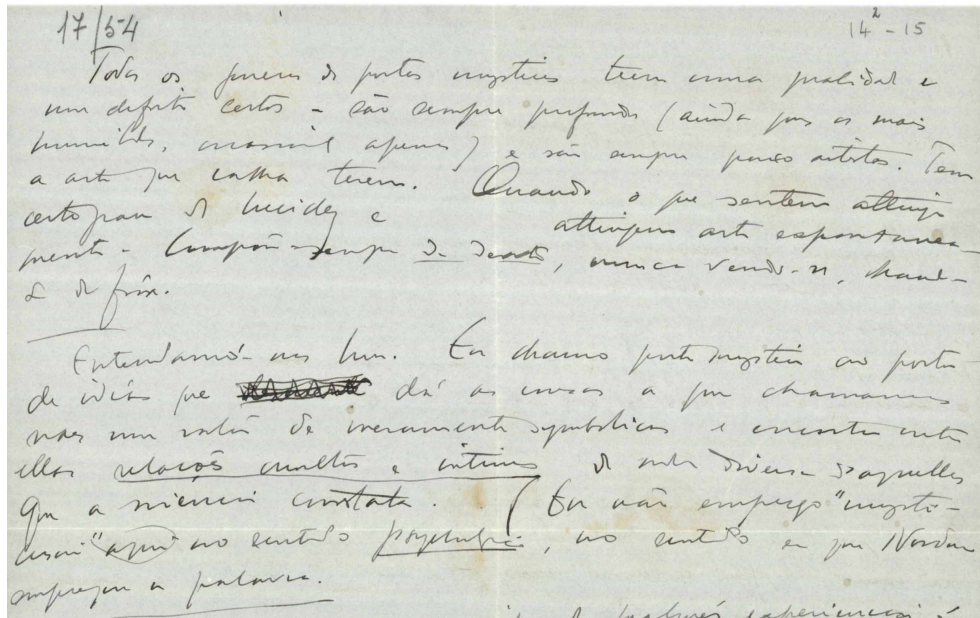 17/54
14² - 15
Todos os generos de poetas mysticos teem uma qualidade e
um defeito certos - são sempre profundos (ainda que os mais
humildes, apenas) e são sempre pouco artistas. Tem
a arte que calha terem. Quando o que sentem attinge
certo grau de lucidez e attingem arte espontanea-
mente - sempre de dentro, nunca vendo-se,
de fóra.
Entendamo-nos bem. Eu chamo poeta mystico ao poeta
de idéas que dá ás cousas a que chamamos
um valor de meramente symbolicas e encontra entre
ellas relações occultas e intimas de ordem diversa d'aquellas
que a sciencia constata. (Eu não emprego "mysti-
cismo" aqui no sentido psychologico, no sentido em que Nordau
emprega a palavra.
experiencias